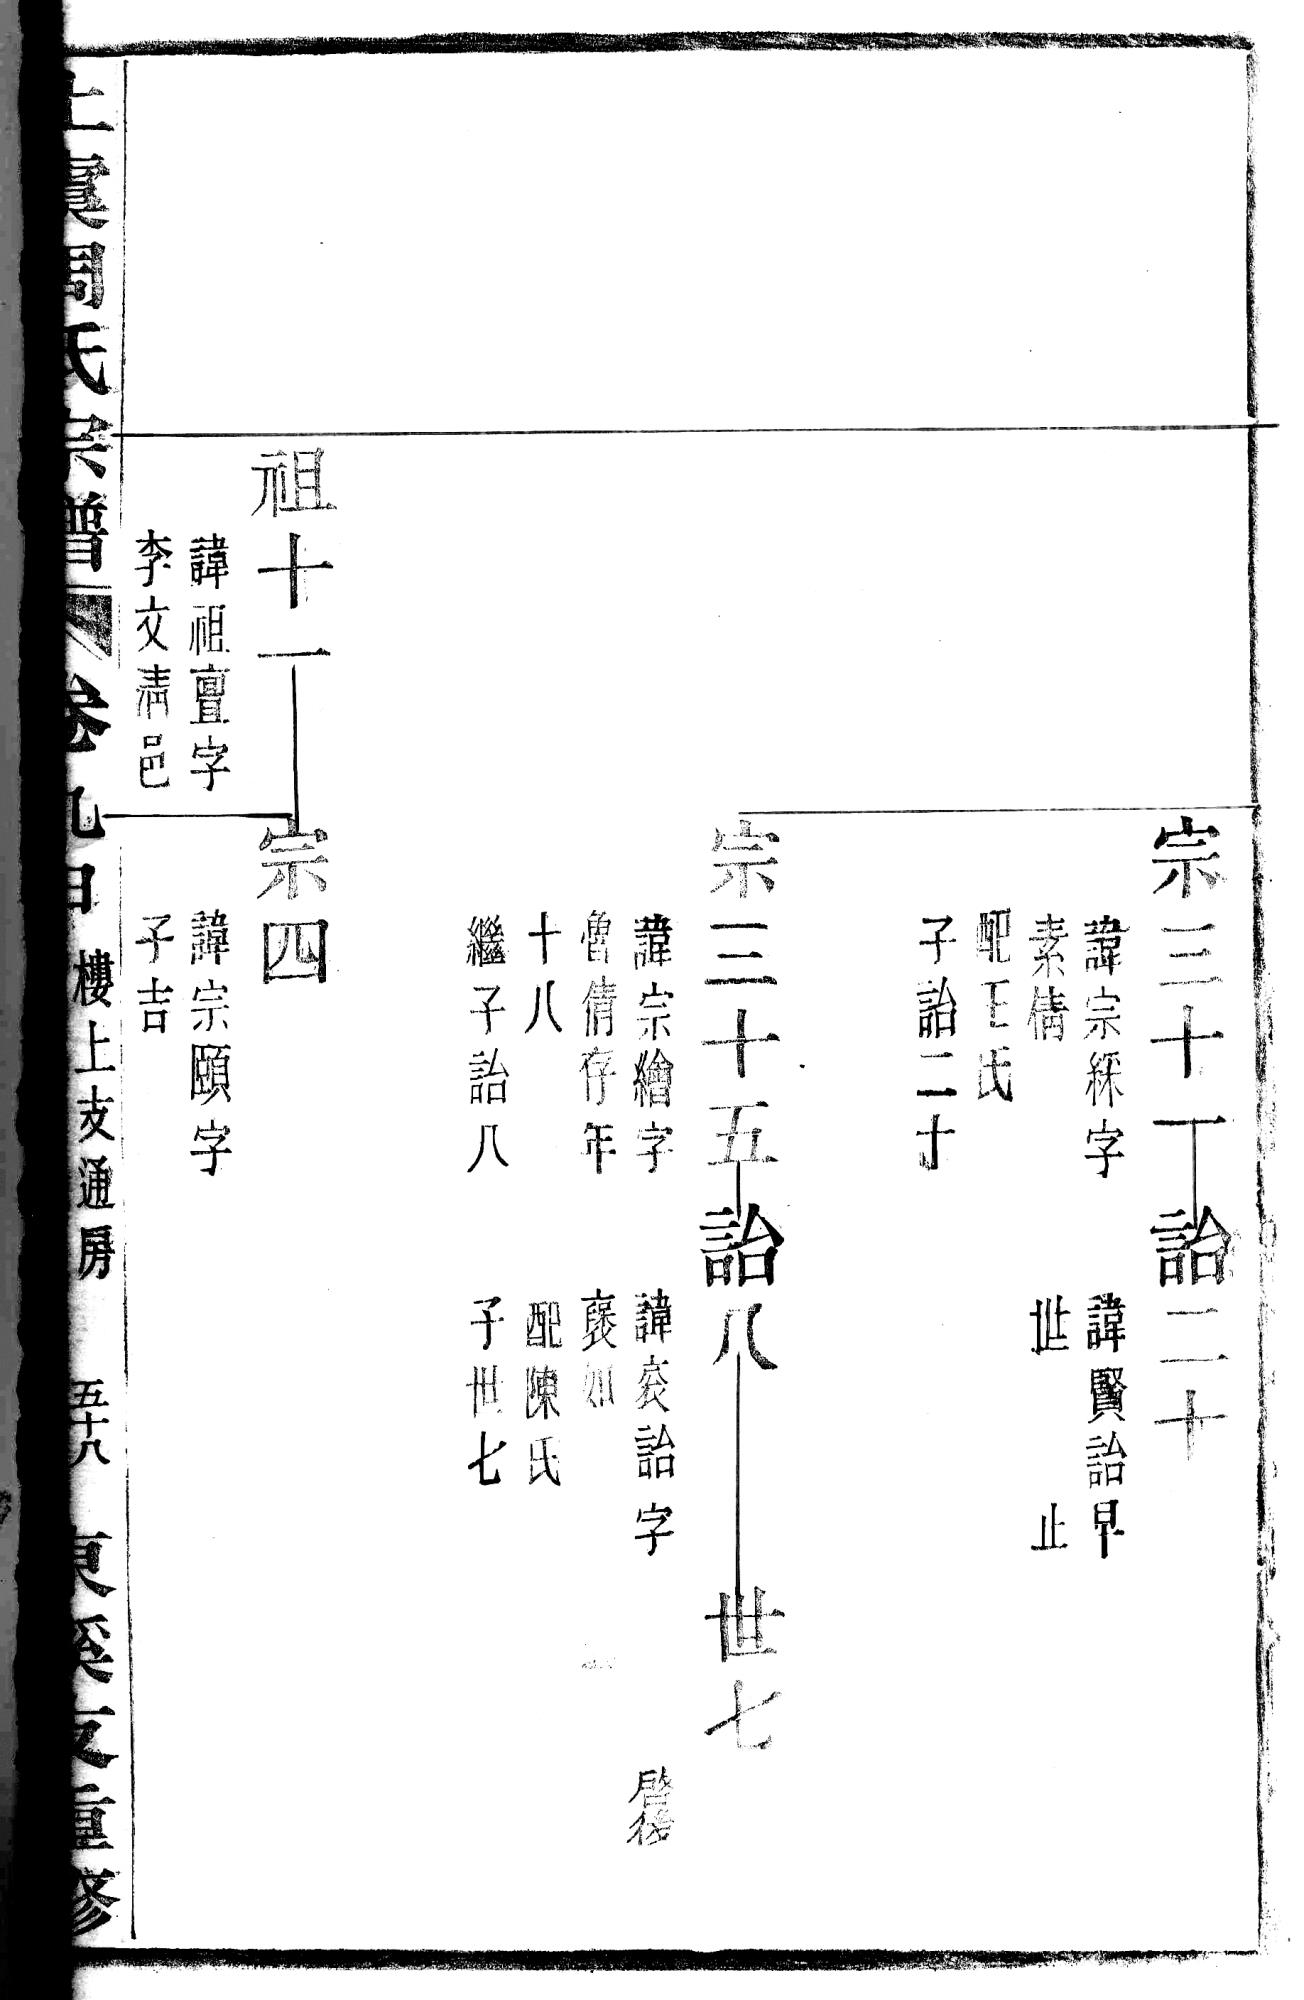 宗三十一
諱宗綵字
素倩
配王氏
子詒二十
詒二十
諱賢詒早
世　止
宗三十五
諱宗繪字
魯倩存年
十八
繼子詒八
詒八
諱袞詒字
褒如
配陳氏
子世七
世七
啓後
祖十一
諱祖亶字
李文清邑
宗四
諱宗頤字
子吉
上虞周氏宗譜
卷九
樓上支通房
五十八
重修